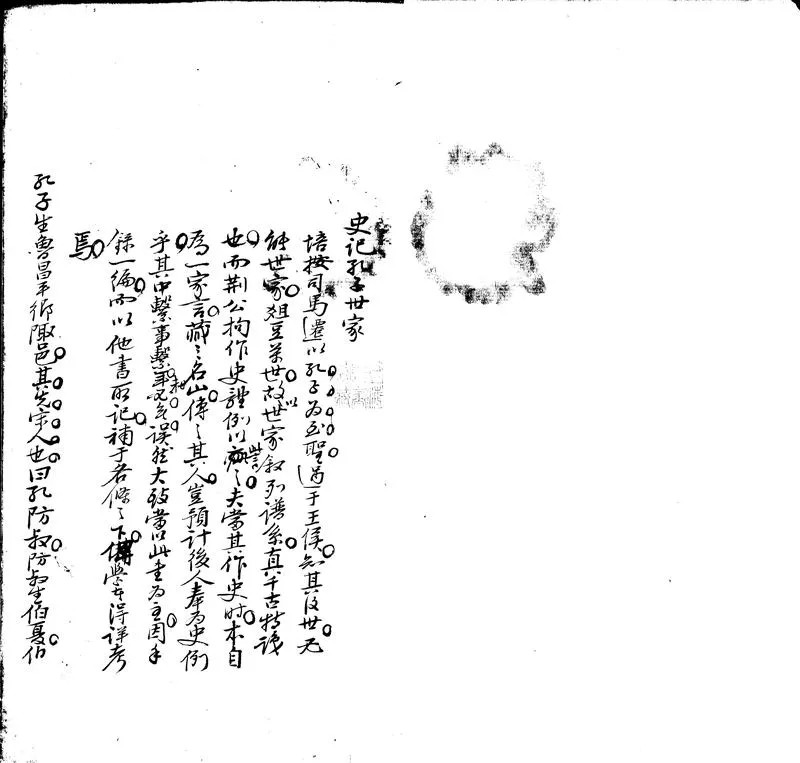 史记孔子世家
培按司馬遷以孔子为至聖过于王侯知其後世无
能世家俎豆万世故以世家叙列谱系真千古特識
也而荆公拘作史體例以訾之夫當其作史时本自
為一家言藏之名山傳之其人豈預計後人奉为史例
乎其中繫事繫年不无误然大致當以此書为主因手
錄一编而以他書所记補于各條之下俾學者得详考
焉
孔子生魯昌平鄉陬邑其先宋人也曰孔防叔防叔生伯夏伯